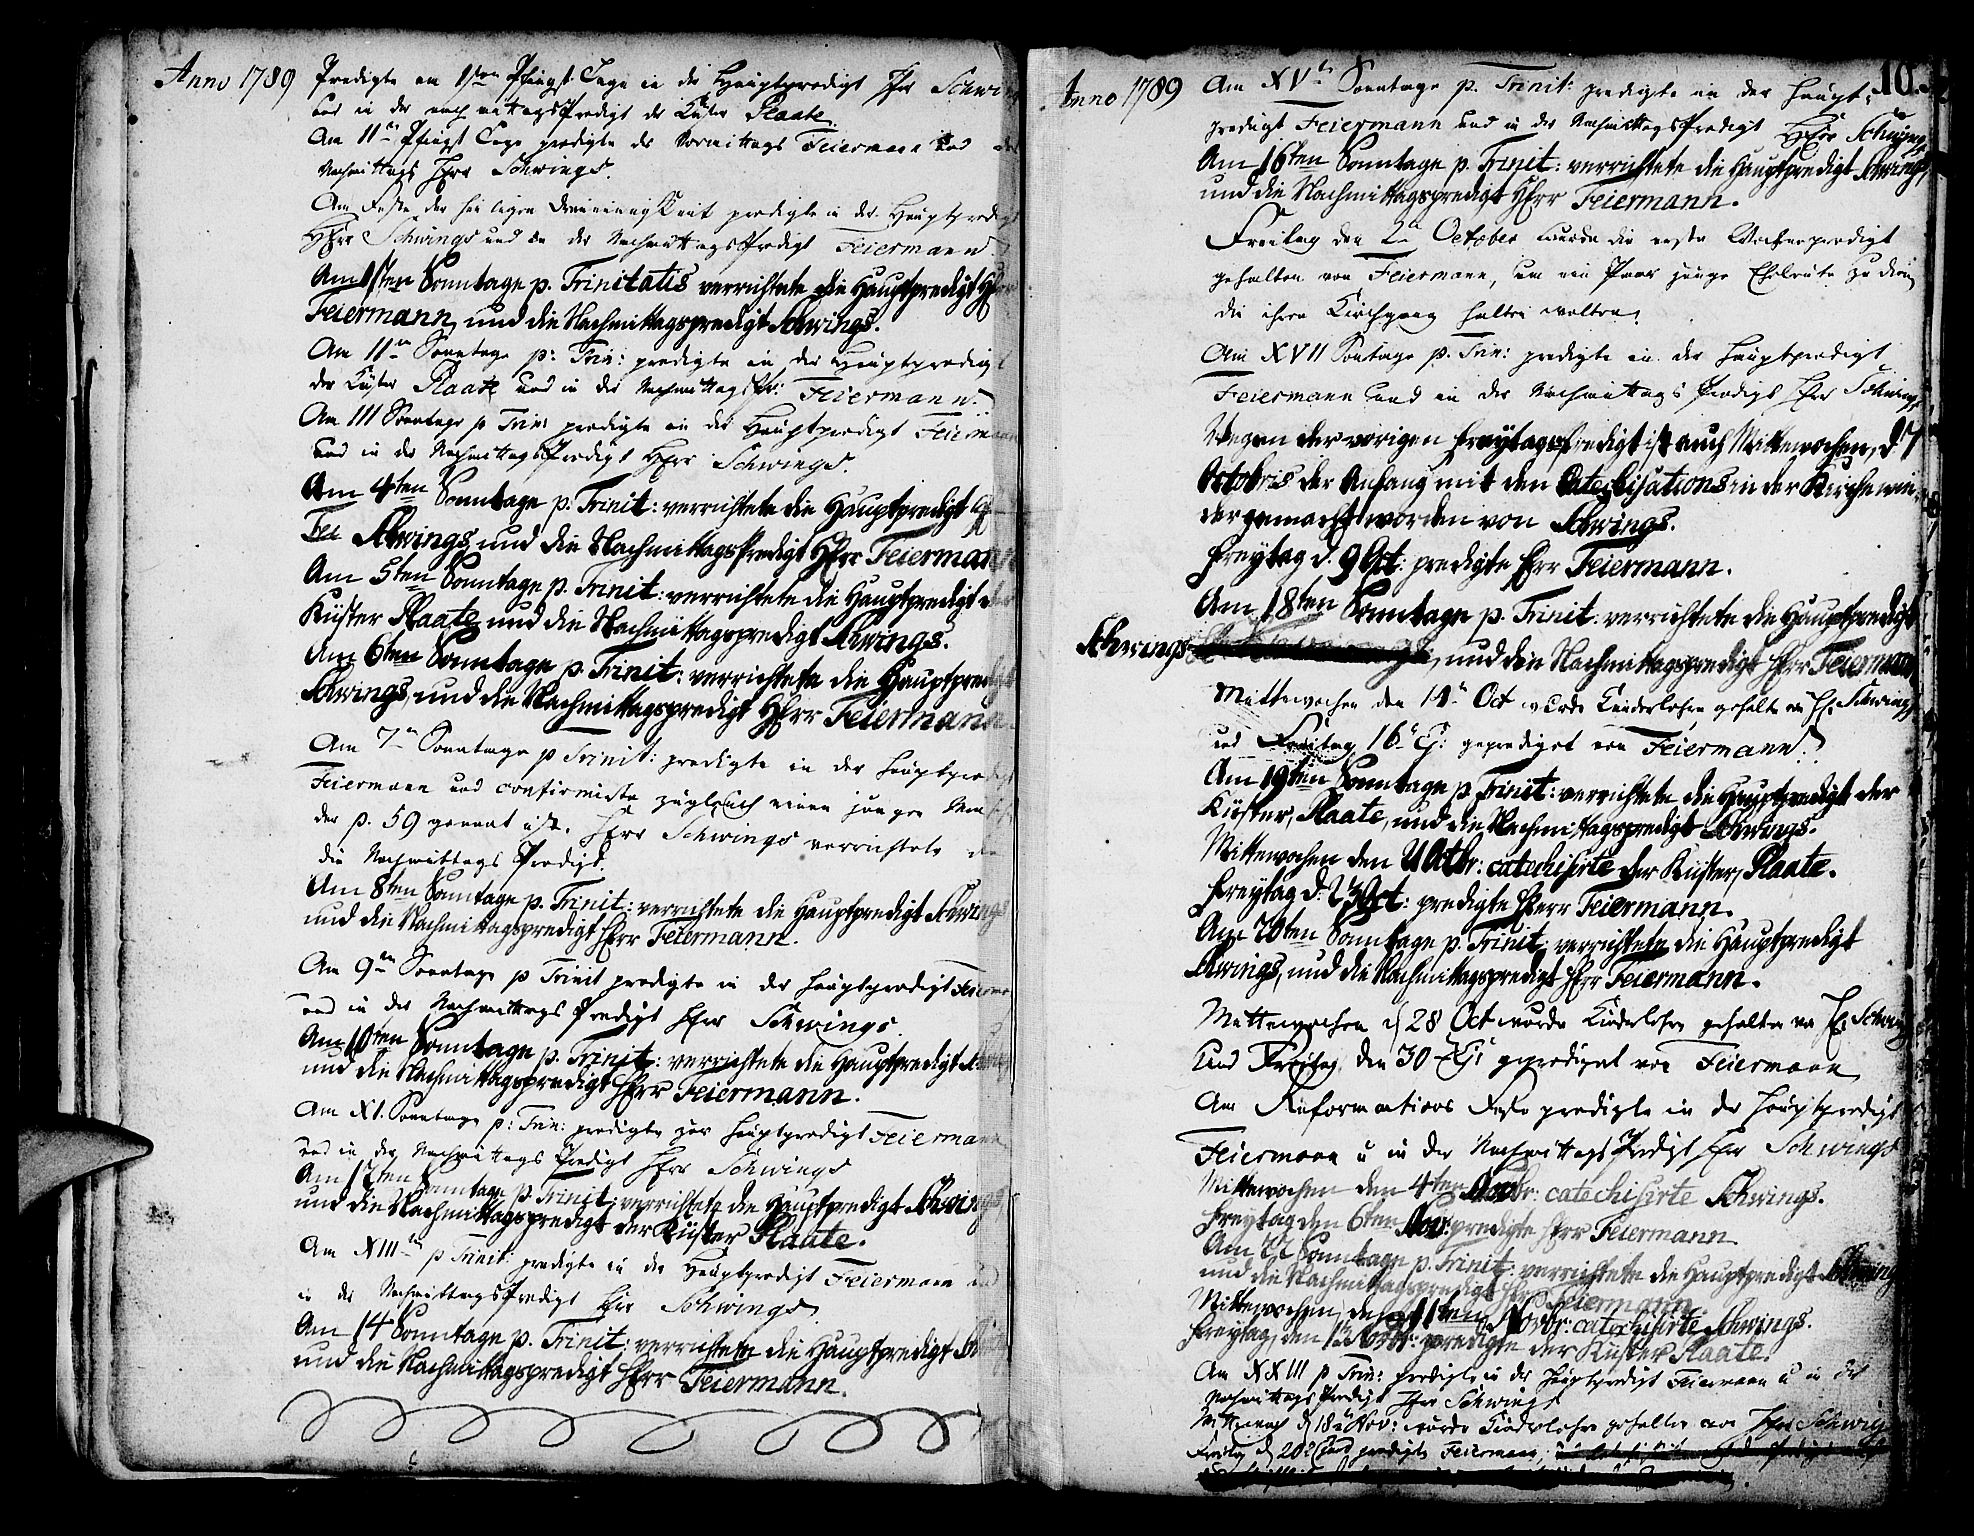 Anno 1789 Predigte am 1sten Pfingst-Tage in der Hauptpredigt Hfrr Schwings
und in der nachmittagsPredigt der Küster Plaate.
Am 11ten Pfingst Tage predigte des Vormittags Feiermann und des
Nachmittags Hfrr Schwings.
Am Feste der heiligen Dreieinigkeit predigte in der Hauptpredigt
Hfrr Schwings und in der NachmittagsPredigt Feiermann.
Am 1sten Sonntage p. Trinitatis verrichtete die Hauptpredigt Hfrr
Feiermann, und die Nachmittagspredigt Schwings.
Am 11ten Sonntage p: Trin: predigte in der Hauptpredigt
der Küster Plaate und in der NachmittagsPr: Feiermann.
Am 111 Sonntage p Trin: predigte in der Hauptpredigt Feiermann
und in der NachmittagsPredigt Hfrr Schwings.
Am 4ten Sonntage p. Trinit: verrichtete die Hauptpredigt
Schwings, und die NachmittagsPredigt Hfrr Feiermann
Am 5ten Sonntage p. Trinit: verrichtete die Hauptpredigt der
Küster Plaate, und die Nachmittagspredigt Schwings.
Am 6ten Sonntage p. Trinit: verrichtete die Hauptpredigt
Schwings, und die Nachmittagspredigt Hfrr Feiermann.
Am 7ten Sonntage p Trinit: predigte in der Hauptpredigt
Feiermann und confirmirte zugleich einen jungen
der p. 59 genant ist. Hfrr Schwings verrichtete
die Nachmittags Predigt.
Am 8ten Sonntage p. Trinit: verrichtete die Hauptpredigt Schwings
und die Nachmittagspredigt Hfrr Feiermann.
Am 9ten Sonntage p Trinit predigte in der Hauptpredigt Feierma
und in der Nachmittags Predigt Hfrr Schwings.
Am 10ten Sonntage p. Trinit: verrichtete die Hauptpredigt Schwings
und die Nachmittagspredigt Hfrr Feiermann.
Am XI. Sonntage p: Trin: predigte zur Hauptpredigt Feiermann
und in der Nachmittags Predigt Hfrr Schwings
Am 12ten Sonntage p. Trinit: verrichtete die Hauptpredigt Schwings
und die Nachmittagspredigt der Küster Plaate.
Am XIIIten p Trinit: predigte in der Hauptpredigt Feiermann und
in der NachmittagsPredigt Hfrr Schwings.
Am 14 Sonntage p. Trinit: verrichtete die Hauptpredigt Schwings
und die Nachmittagspredigt Hfrr Feiermann.
10
Anno 1789 Am XVten Sonntage p. Trinit: predigte in der Haupt-
predigt Feiermann und in der NachmittagsPredigt Hfrr Schwings
Am 16ten Sonntage p. Trinit: verrichtete die Hauptpredigt Schwings,
und die Nachmittagspredigt Hfrr Feiermann.
Freitag den 2ten October wurde die erste Wochenpredigt
gehalten von Feiermann, um ein Paar junge Eheleute zu dien
die ihren Kirchgang halten wolten.
Am XVII Sontage p. Trin: predigte in der Hauptpredigt
Feiermann und in der Nachmittags Predigt Hfrr Schwings
Wegen der vorigen Freytagspredigt ist auch Mittewochen, d. 7
Octobris der Anfang mit den Catechisations in der Kirche wie-
der gemacht worden von Schwings.
Freytag d. 9 Oct: predigte Hfrr Feiermann.
Am 18ten Sonntage p. Trinit: verrichtete die Hauptpredigt
Schwings, und die Nachmittagspredigt Hfrr Feiermann,
Mittewochen den 14ten Oct wurde Kinderlehre gehalten von H. Schwings
und Freitag 16ten Ej: geprediget von Feiermann.
Am 19ten Sonntage p. Trinit: verrichtete die Hauptpredigt der
Küster, Plaate, und die Nachmittagspredigt Schwings.
Mittewochen den 21 Octbr: catechisirte der Küster, Plaate.
Freytag d. 23 Oct: predigte Herr Feiermann.
Am 20ten Sonntage p. Trinit: verrichtete die Hauptpredigt
Schwings, und die Nachmittagspredigt Hfrr Feiermann.
Mittewochen d 28 Oct wurde Kinderlehre gehalten von H. Schwings
und Freitag den 30 Ejs geprediget von Feiermann
Am Reformations Feste predigte in der Hauptpredigt
Feiermann u in der Nachmittags Predigt Hfrr Schwings
Mittewochen den 4ten Novbr: catechisirte Schwings.
Freytag den 6ten Nov: predigte Hfrr Feiermann.
Am 22 Sonntage p. Trinit: verrichtete die Hauptpredigt Schwings
und die Nachmittagspredigt Hfrr Feiermann.
Mittewochen, den 11ten Novbr: catechisirte Schwings.
Freytag, den 13 Novbr: predigte der Küster Plaate.
Am XXIII p Trin: predigte in der Hauptpredigt Feiermann u in der
Nachmittags Predigt Hfrr Schwings
Mittewoch d 18ten Nov: wurde Kinderlehre gehalten von Hfrr Schwings
Freitag d 20 predigte Feiermann,